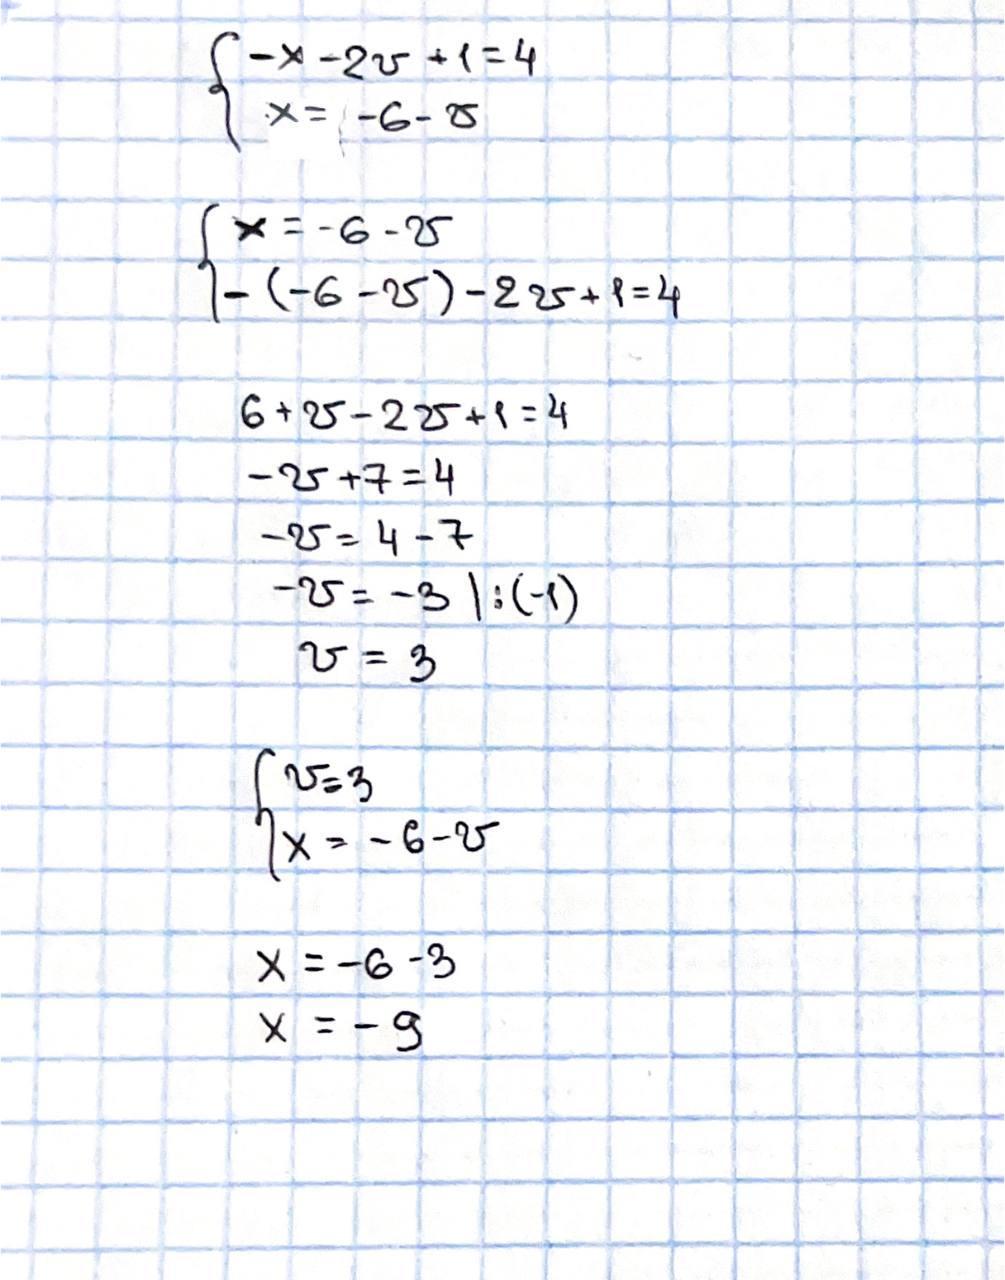 { -x - 2v + 1 = 4
x = -6 - v
{ x = -6 - v
- (-6 - v) - 2v + 1 = 4
6 + v - 2v + 1 = 4
-v + 7 = 4
-v = 4 - 7
-v = -3 | : (-1)
v = 3
{ v = 3
x = -6 - v
x = -6 - 3
x = -9